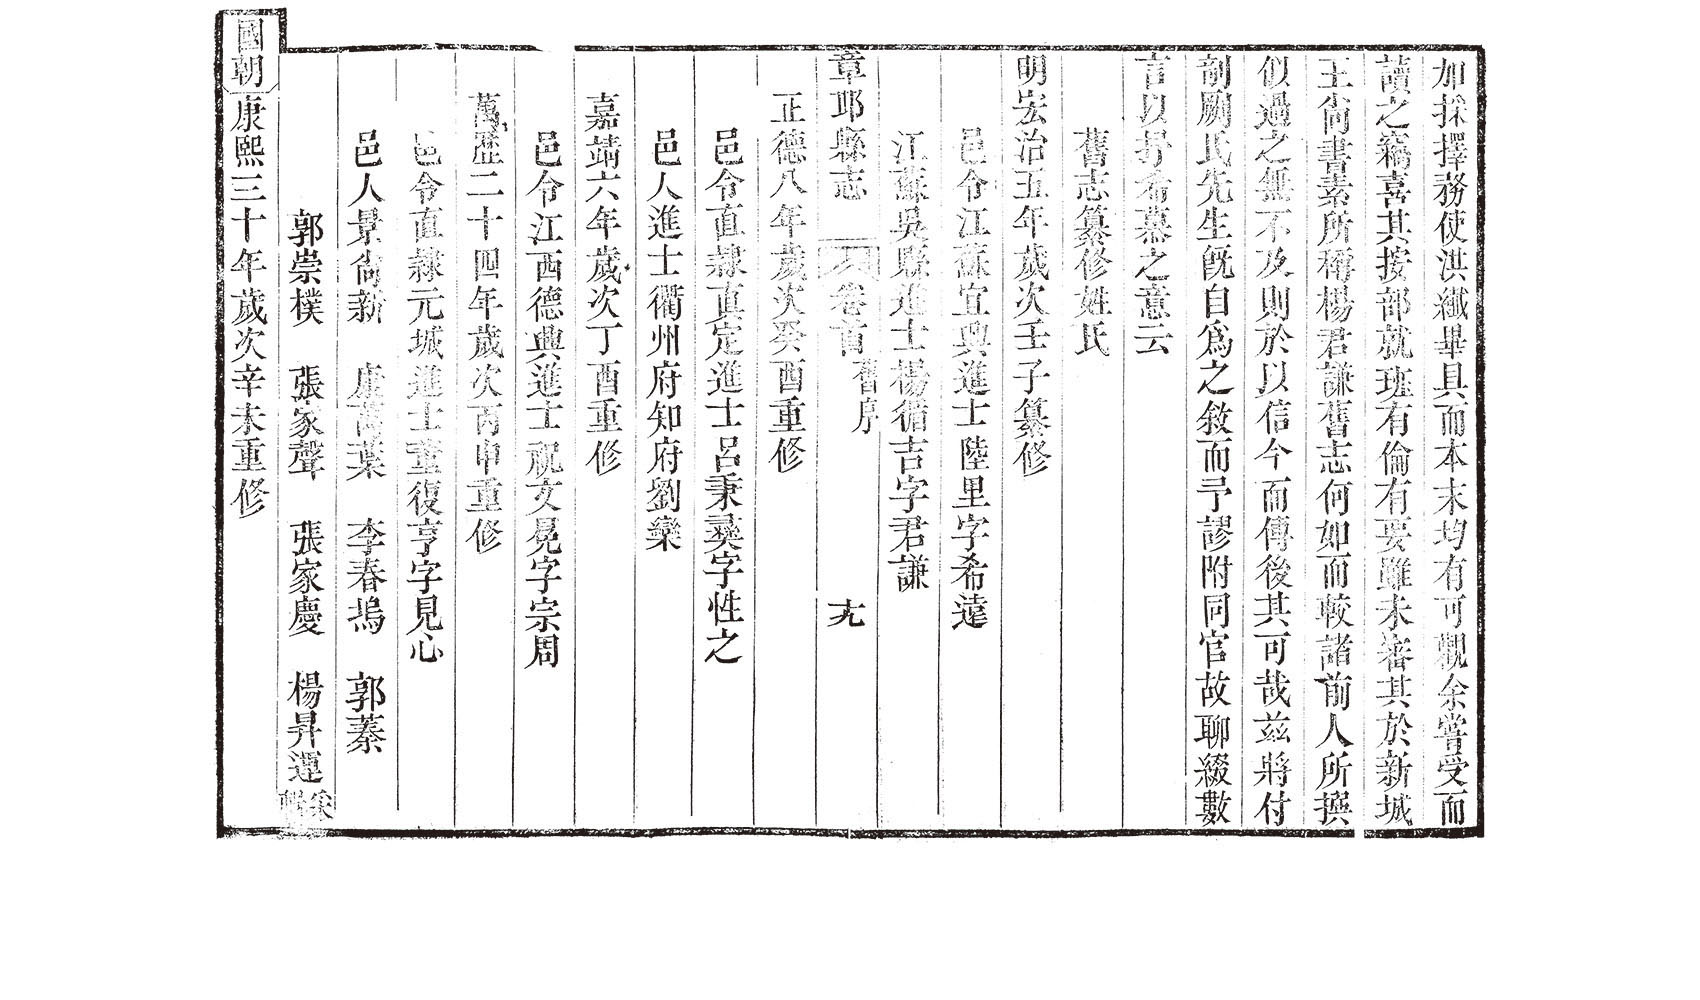 加採擇務使洪纖畢具而本末均有可觀余嘗受而
讀之竊喜其按部就班有倫有要雖未審其於新城
王尙書素所稱楊君謙舊志何如而較諸前人所撰
似過之無不及則於以信今而傳後其可哉兹將付
剞劂氏先生旣自爲之敘而予謬附同官故聊綴數
言以抒希慕之意云
舊志纂修姓氏
明宏治五年歲次壬子纂修
邑令江蘇宜興進士陸里字希遠
江蘇吳縣進士楊循吉字君謙
章邱縣志 卷首 舊序 十九
正德八年歲次癸酉重修
邑令直隸真定進士呂秉彝字性之
邑人進士衢州府知府劉欒
嘉靖六年歲次丁酉重修
邑令江西德興進士祝文冕字宗周
萬歷二十四年歲次丙申重修
邑令直隸元城進士董復亨字見心
邑人景尙新 盧萬葉 李春塢 郭蓁
郭崇樸 張家聲 張家慶 楊昇運 采輯
國朝康熙三十年歲次辛未重修